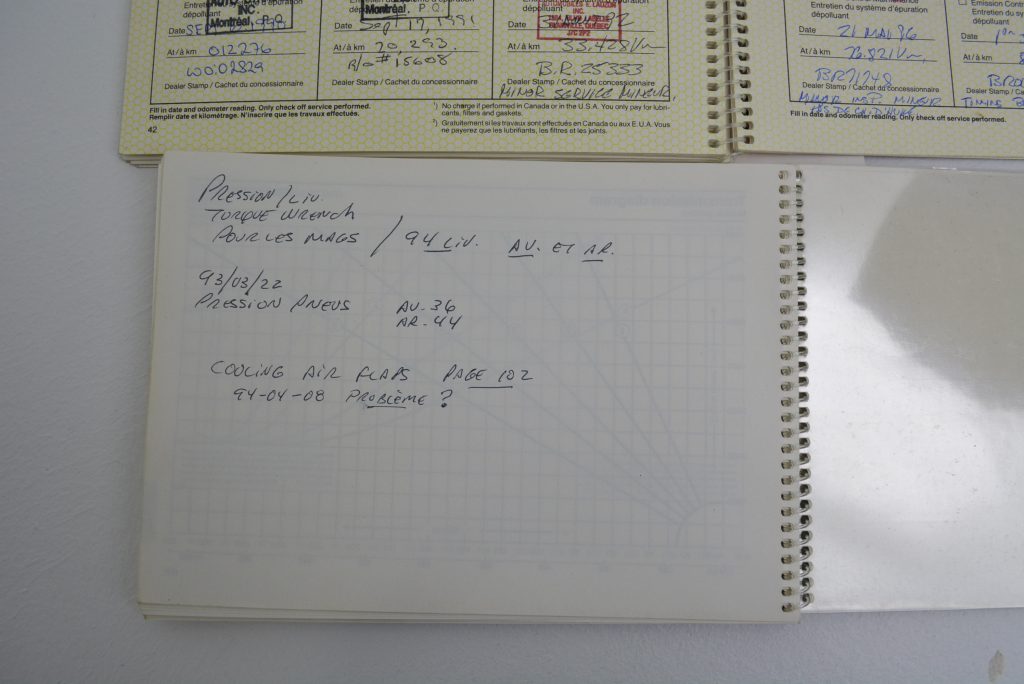 Entretien du système d'épuration
dépolluant
INC.
Montréal, P.Q.
Date SEPT
At / à km 012276
WO:02829
Dealer Stamp / Cachet du concessionnaire
Fill in date and odometer reading. Only check off service performed.
Remplir date et kilométrage. N'inscrire que les travaux effectués.
42
Montréal, P.Q.
Date Sept 17, 1991
At / à km 20,293
R/O # 15608
Dealer Stamp / Cachet du concessionnaire
Entretien du système d'épuration
dépolluant
INC.
Date
At / à km 33,428 Km
B.R. 25353
Dealer Stamp / Cachet du concessionnaire
MINOR SERVICE MINEUR,
¹) No charge if performed in Canada or in the U.S.A. You only pay for lubri-
cants, filters and gaskets.
²) Gratuitement si les travaux sont effectués en Canada ou aux E.U.A. Vous
ne payerez que les lubrifiants, les filtres et les joints.
Entretien du système d'épuration
dépolluant
Date 21 MAI 96
At / à km
BR 71248
Dealer Stamp / Cachet du concessionnaire
MINEUR
Fill in date and odometer reading. Only check off service performed.
Emission Contr
Entretien du
dépolluant
Date
At / à km
Dealer Stamp / C
TIMING B
PRESSION / LIV.
TORQUE WRENCH
POUR LES MAGS / 94 LIV. AV. ET AR.
93/03/22
PRESSION PNEUS AV-36
AR-44
COOLING AIR FLAPS PAGE 102
94-04-08 PROBLÈME ?